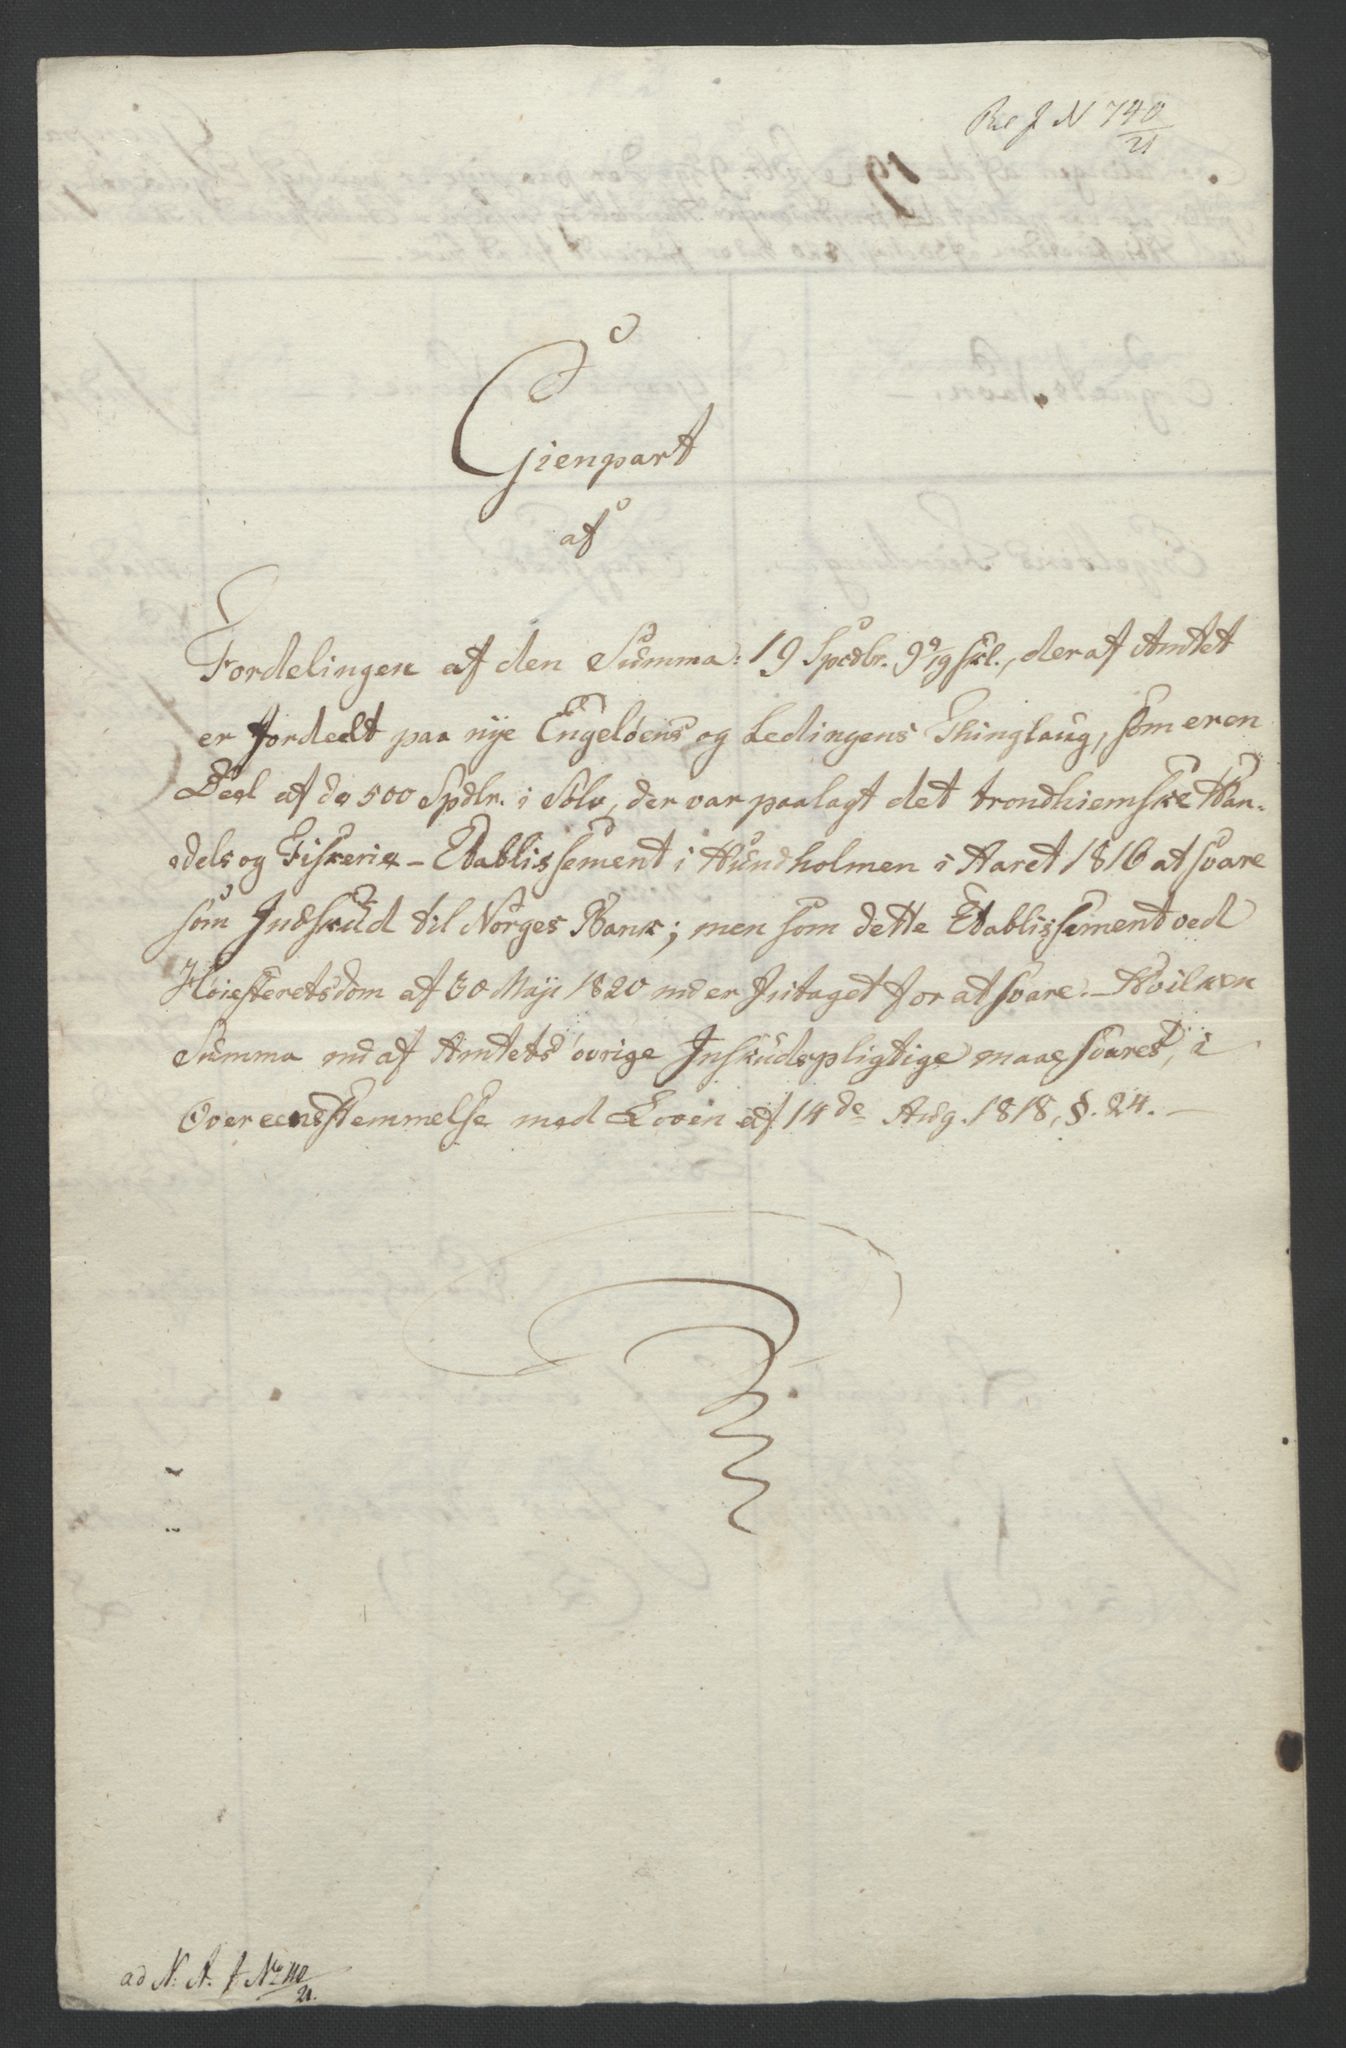 Rec J N 740/21
19
Gienpart
af
Fordelingen af den Summa: 19 Spcdlr. 9 9/19 skl., der af Amtet
er fordeelt paa nye Engelöens og Ledingens Thinglaug, som er en
Deel af de 500 Spdlr. i Sölv, der var paalagt det trondhiemske Han-
dels og Fiskerie-Etablissement i Hundholmen i Aaret 1816 at svare
som Indskud til Norges Bank; men som dette Etablissement ved
Höiesteretsdom af 30 Maji 1820 nu er fritaget for at svare. - Hvilken
Summa nu af Amtets övrige Inskudspligtige maae svares, i
Overeensstemmelse med Loven af 14de Aug. 1818, §. 24. -
ad N. A. J No 110/21.